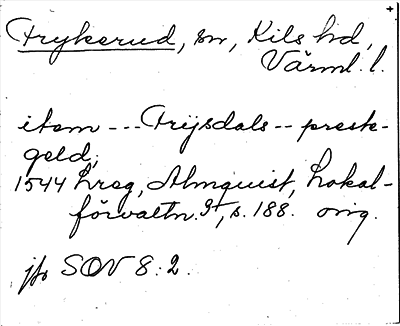 Frykerud, sn, Kils hd,
Värml. l.
item --- Frijsdals -- preste-
geld;
1544 Lreg, Almquist, Lokal-
förvaltn. 9†, s. 188. orig.
jfr SOV 8:2.